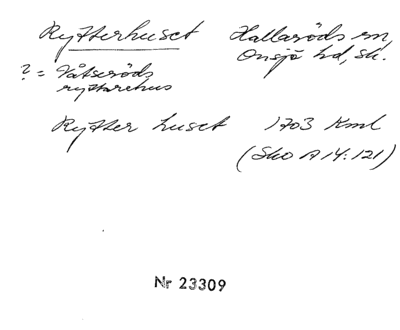 Rytterhuset Hallaröds sn,
Onsjö hd, Sk.
? = Våtseröds
ryttarehus
Rytter huset 1703 Kml
(Sko A 14:121)
Nr 23309